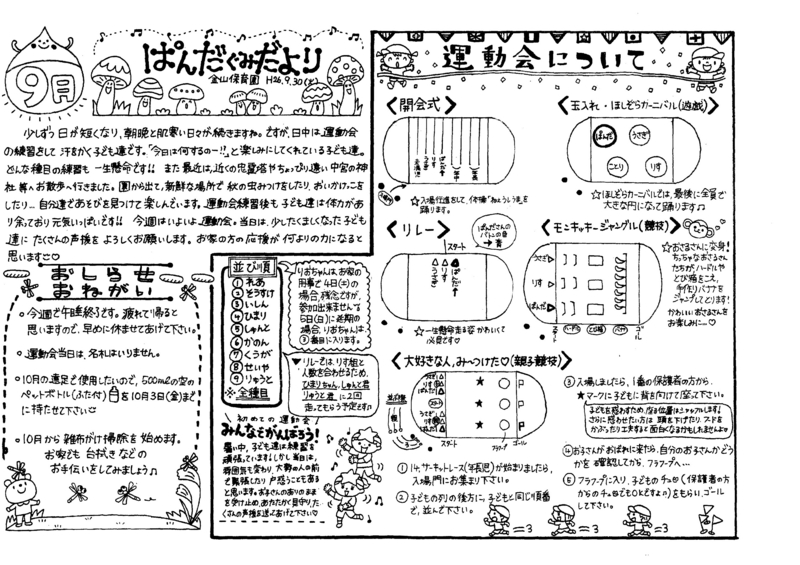 9月
ぱんだぐみだより
金山保育園 H26.9.30(火)
少しずつ日が短くなり、朝晩と肌寒い日々が続きますね。ですが、日中は運動会
の練習をして汗をかく子ども達です。「今日は何するのー!!」と楽しみにしてくれている子ども達。
どんな種目の練習も一生懸命です!! また最近は、近くの忠霊塔やちょっぴり遠い中宮の神
社等へお散歩へ行きました。園から出て、新鮮な場所で秋の虫みつけをしたり、おいかけっこを
したり…自分達であそびを見つけて楽しんでいます。運動会練習後も子ども達は体力があ
り余っており元気いっぱいです!! 今週はいよいよ運動会。当日は、少したくましくなった子ども
達にたくさんの声援をよろしくお願いします。お家の方の応援が何よりの力になると
思います♡
おしらせ
おねがい
○今週で午睡終了です。疲れて帰ると
思いますので、早めに休ませてあげて下さい。
○運動会当日は、名札はいりません。
○10月の遠足で使用したいので、500mlの空の
ペットボトル(ふた付)を10月3日(金)まで
に持たせて下さい
○10月から雑布がけ掃除を始めます。
お家でも台拭きなどの
お手伝いをしてみましょう♪
並び順
①れあ
②そうすけ
③いしん
④ひまり
⑤しゅんと
⑥かのん
⑦くうが
⑧せいや
⑨りゅうと
※全種目
りおちゃんは、お家の
用事で4日(土)の
場合、残念ですが、
参加出来ません。
5日(日)に延期の
場合、りおちゃんは、
③番目に入ります。
▼リレーでは、りす組と
人数を合わせるため、
ひまりちゃん、しゅんと君
りゅうと君に2回
走ってもらう予定です♪
初めての運動会
みんなでがんばろう!
暑い中、子ども達は練習を
頑張っています!しかし当日は、
雰囲気も変わり、大勢の人の前
で緊張したり戸惑うこともある
と思います。お子さんのありのまま
を受け止め、あたたかく見守り、た
くさんの声援を送ってあげて下さい♡
運動会について
<開会式>
☆入場行進をして、体操「ねぇうしうま」を
踊ります。
<玉入れ・ほしぞらカーニバル(遊戯)>
ぱんだ
うさぎ
ことり
りす
☆ほしぞらカーニバルでは、最後に全員で
大きな円になって踊ります♪
<リレー>
スタート
ぱんださんの
バトンの色
→青
うさぎ
りす
ぱんだ
☆一生懸命走る姿がかわいくて
必見です!
<モンキッキージャングル(競技)>
うさぎ
りす
ぱんだ
ゴール
☆おさるさんに変身!
ちっちゃなおさるさん
たちが、ハードルや
とび箱をこえ、
手作りバナナを
ジャングルでとります!
かわいいおさるさんを
お楽しみに―♡
<大好きな人、み~つけた♡(親子競技)>
うさぎ
りす
ぱんだ
スタート
うさぎ
りす
ぱんだ
スタート
フラフープ
ゴール
①14.サーキットレース(年長児)が始まりましたら、
入場門にお集まり下さい。
②子どもの列の後方に、子どもと同じ順番
で、並んで下さい。
③入場しましたら、1番の保護者の方から、
★マークに子どもに背を向けて座って下さい。
子どもを惑わすため、座る位置はシャッフルします。
さらに惑わせたい方は頭を下げたり、フードを
かぶったり工夫すると面白くなるかもしれませんよ
④お子さんがおばけに来たら、自分のお子さんかどう
かを確認してから、フラフープへ…
⑤フラフープに入り、子どものチュウ(保護者の方
からのチュウでもOKですよ)をもらい、ゴール
して下さい。